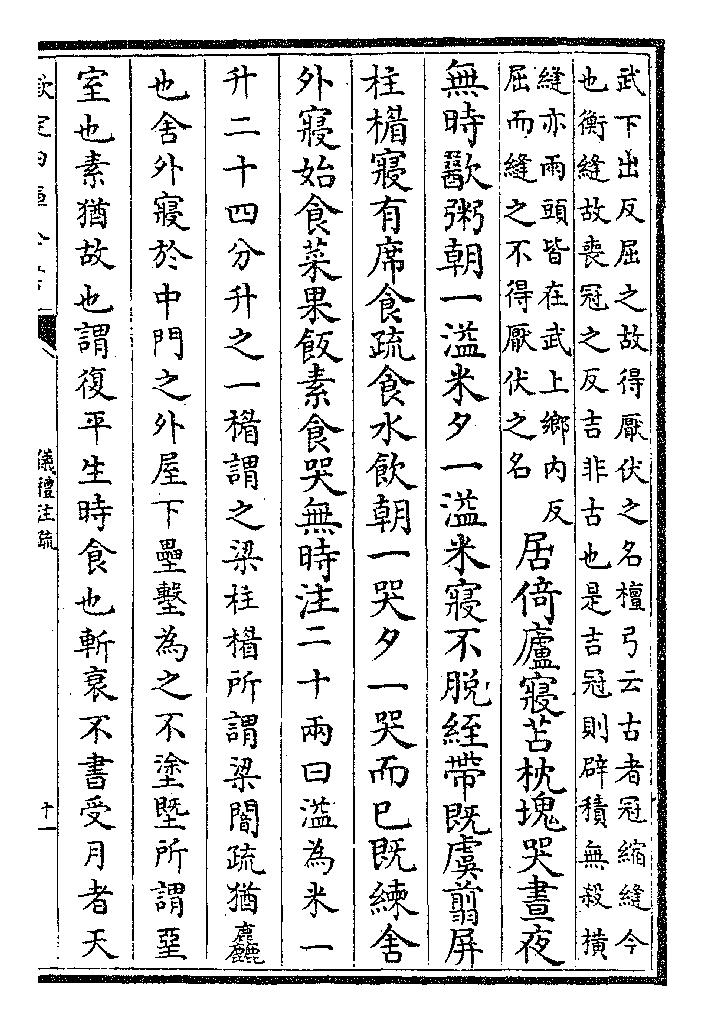 武下出反屈之故得厭伏之名檀弓云古者冠縮縫今
也衡縫故喪冠之反吉非古也是吉冠則辟積無殺橫
縫亦兩頭皆在武上鄉內反
屈而縫之不得厭伏之名
居倚廬寢苫枕塊哭晝夜
無時歠粥朝一溢米夕一溢米寢不脫絰帶既虞翦屏
柱楣寢有席食疏食水飲朝一哭夕一哭而已既練舍
外寢始食菜果飯素食哭無時注二十兩曰溢為米一
升二十四分升之一楣謂之梁柱楣所謂梁闇疏猶麤
也舍外寢於中門之外屋下壘墼為之不塗塈所謂堊
室也素猶故也謂復平生時食也斬衰不書受月者天
儀禮注疏
十一